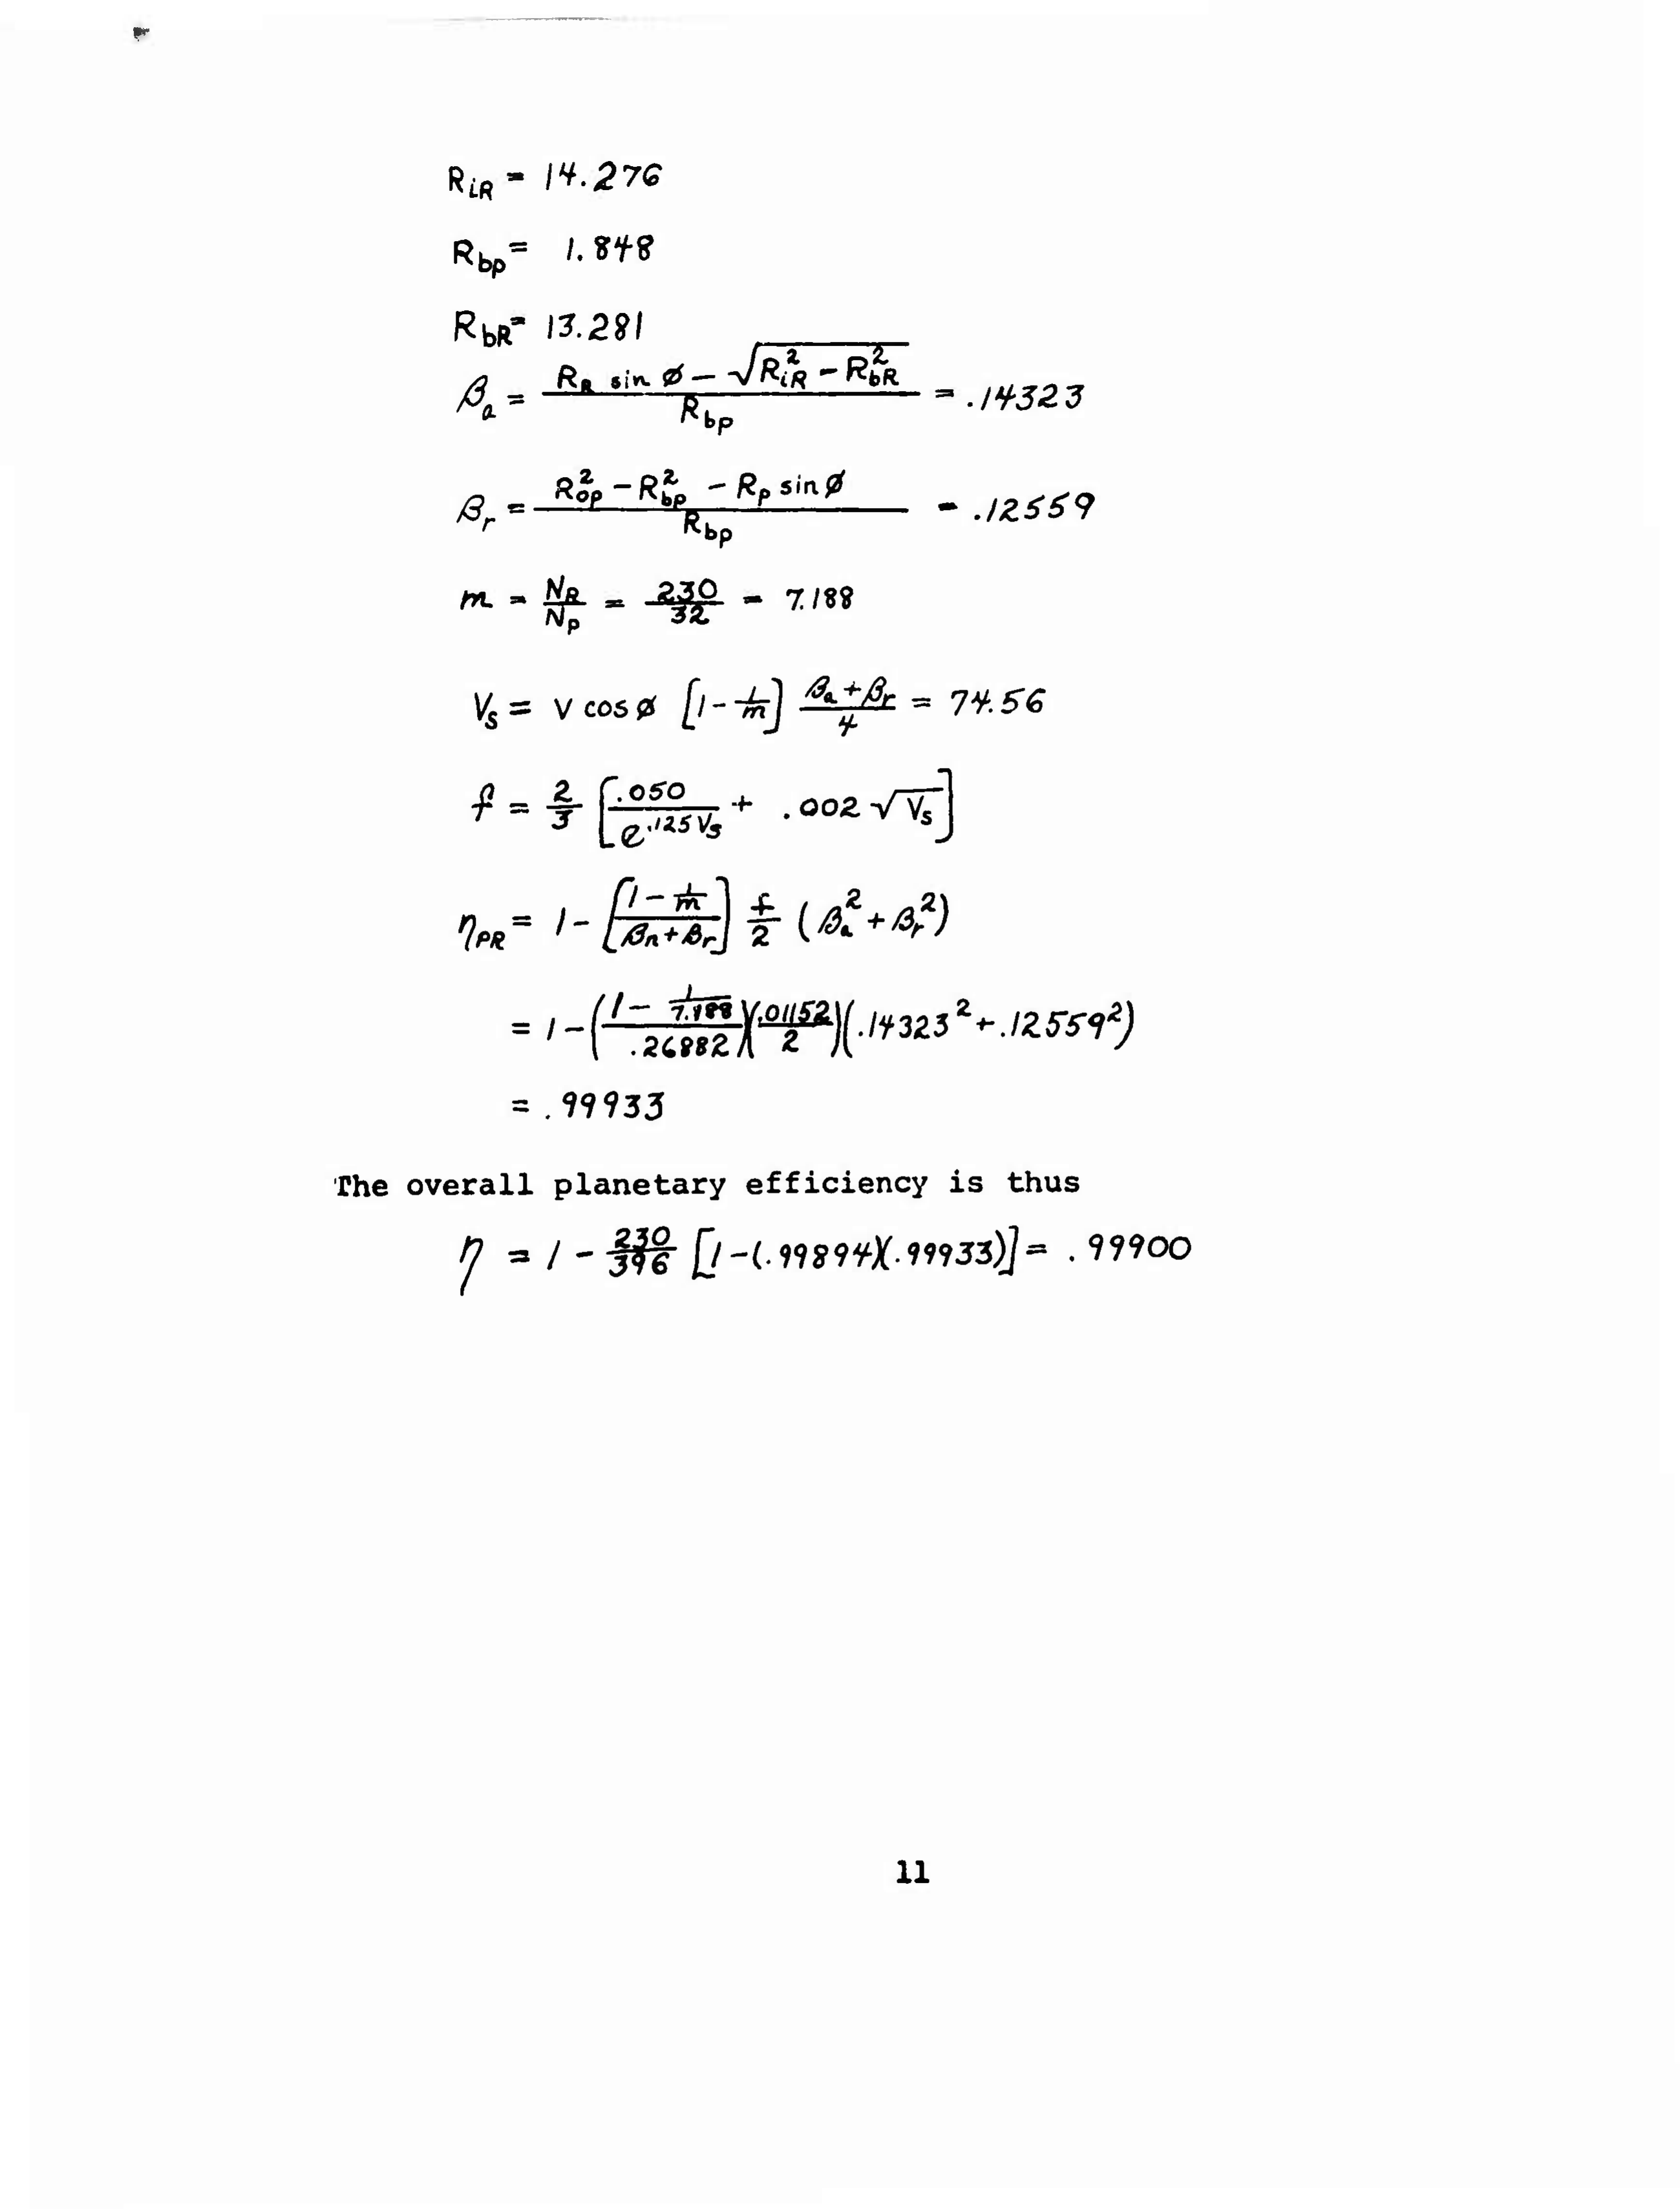 R_iR = 14.276
R_bp = 1.848
R_bR = 13.281
β_a = (R_R sin ø − √(R_iR² − R_bR²)) / R_bp = .14323
β_r = (R_op² − R_bp² − R_p sin ø) / R_bp = .12559
m = N_R / N_p = 230 / 32 = 7.188
V_s = V cos ø [1 − 1/m] (β_a + β_r) / 4 = 74.56
f = 2/3 [.050 / e^.125 V_s + .002 √V_s]
η_PR = 1 − [(1 − 1/m) / (β_n + β_r)] f/2 (β_a² + β_r²)
= 1 − ((1 − 1/7.188) / .26882)(.01152 / 2)(.14323² + .12559²)
= .99933
The overall planetary efficiency is thus
η = 1 − 230/396 [1 − (.99894)(.99933)] = .99900
11